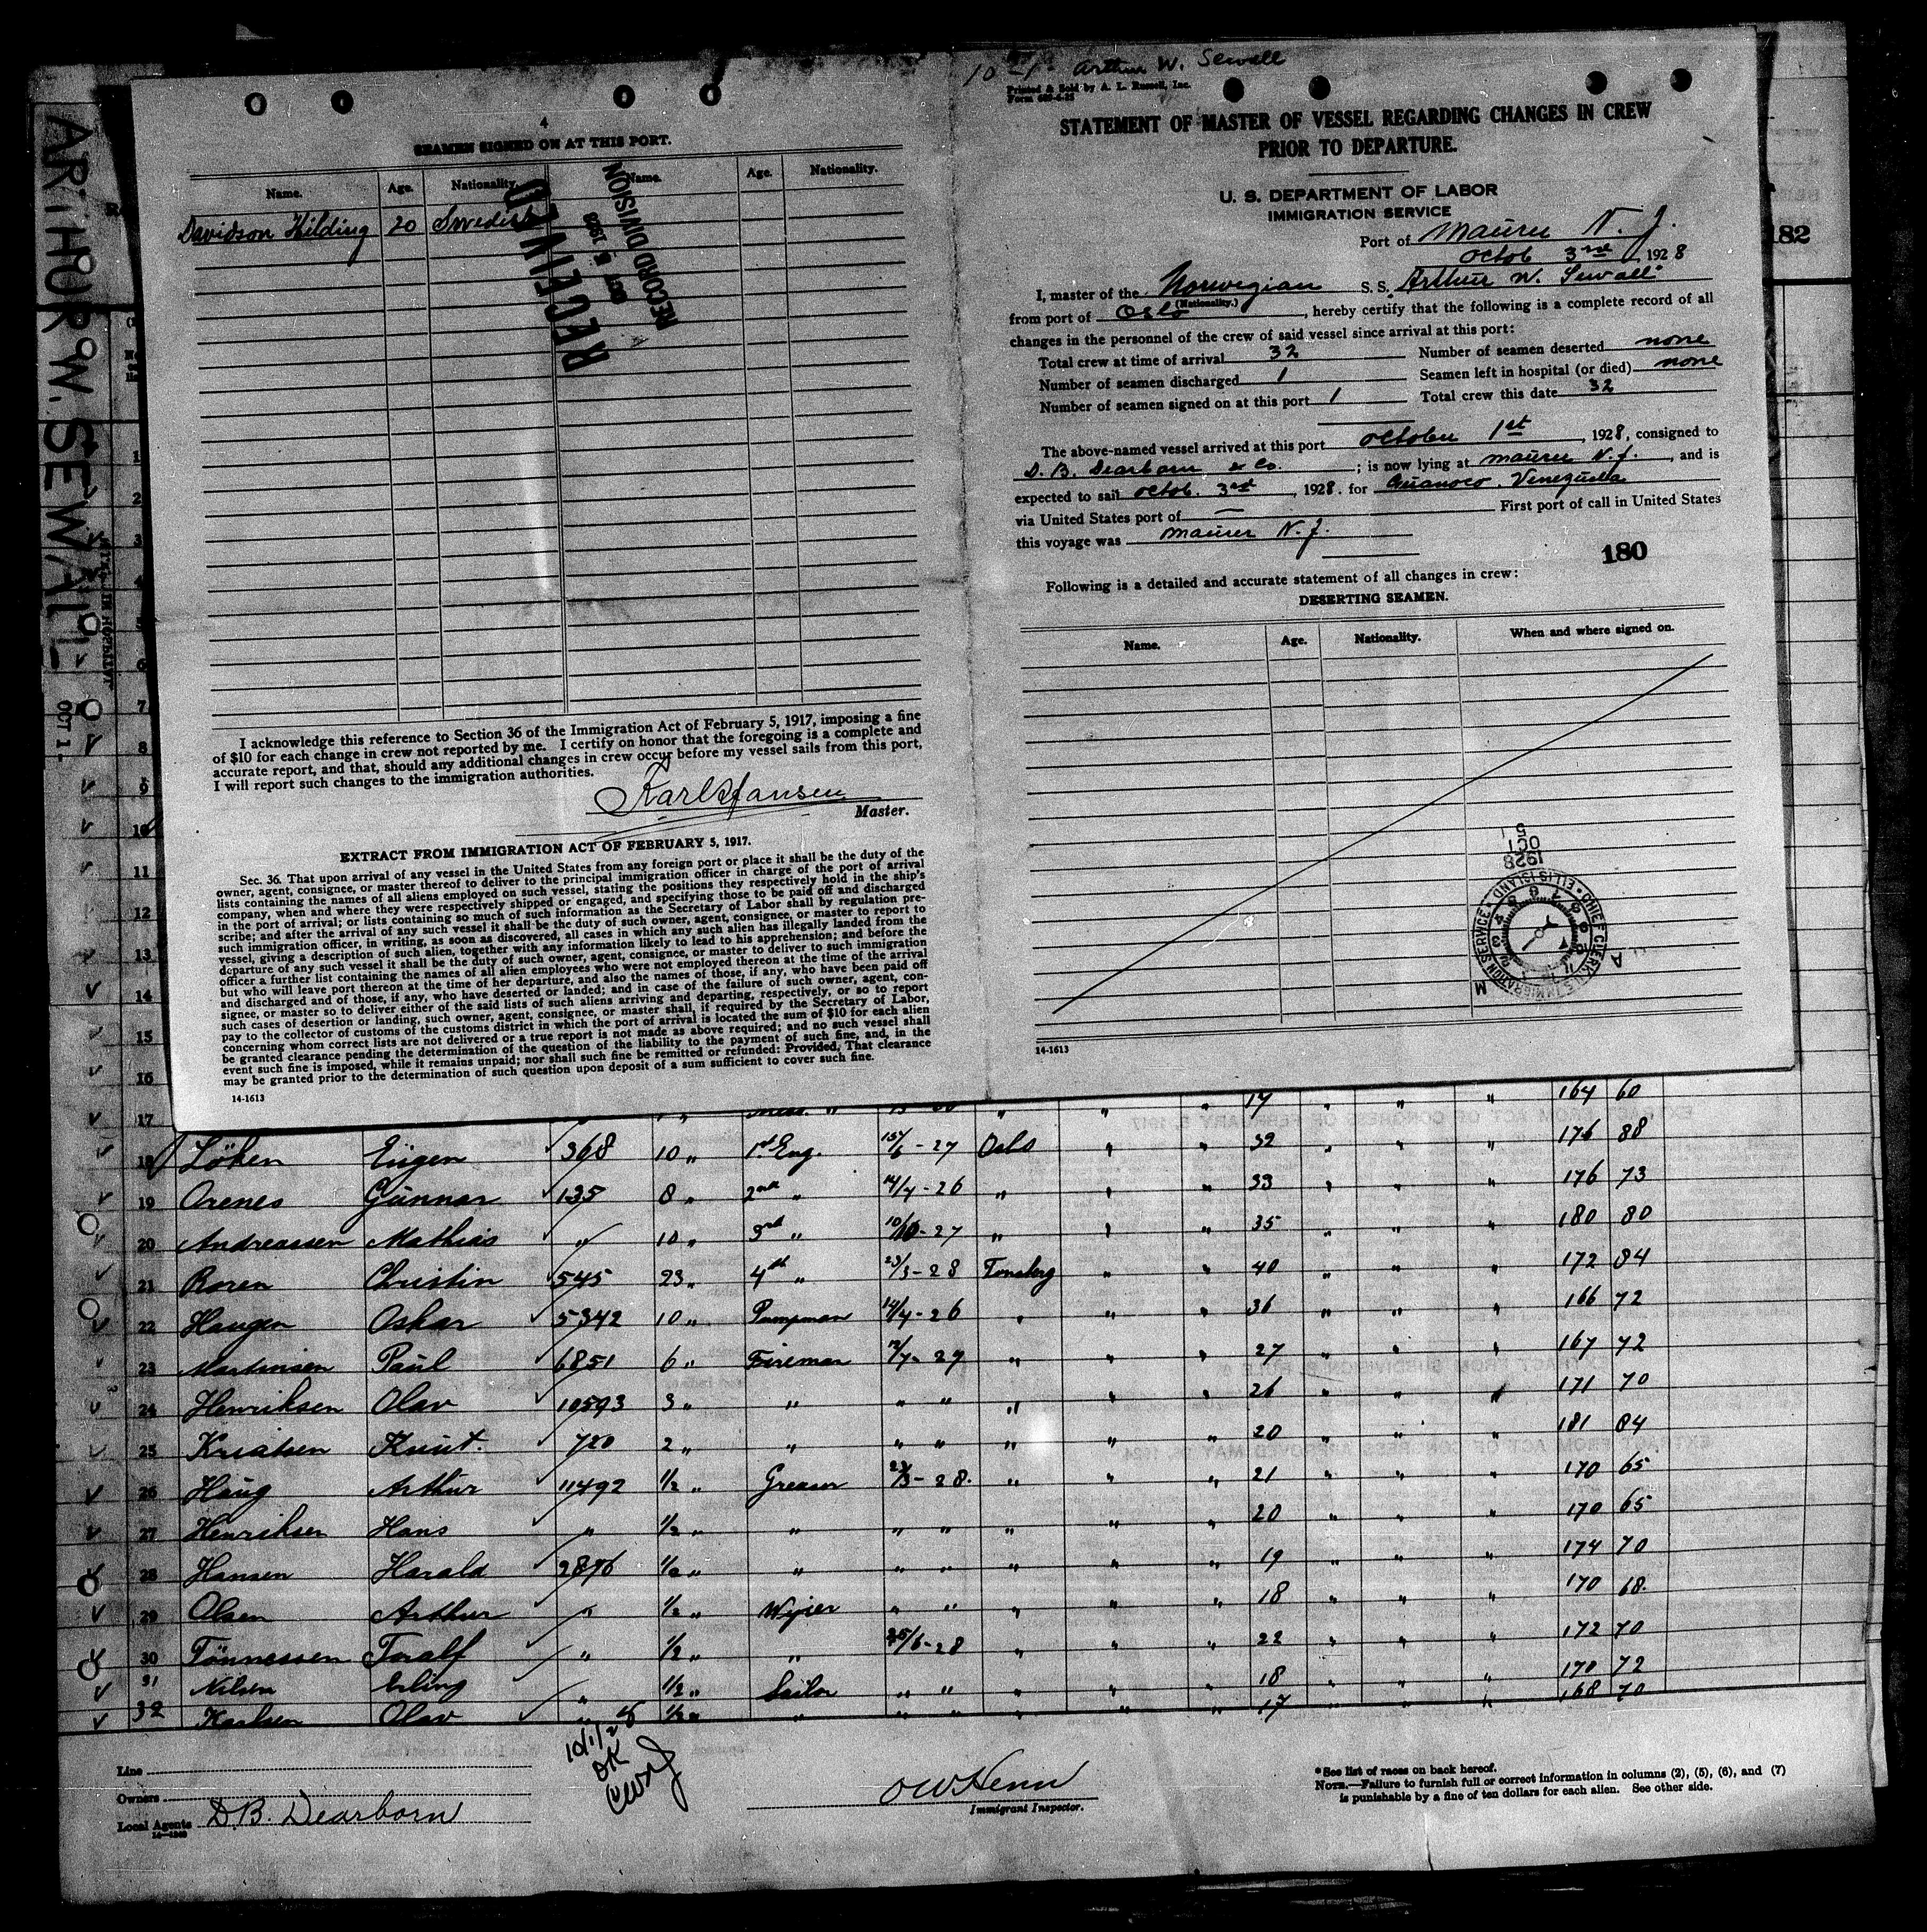 ARTHUR W. SEWALL
OCT 1-
182
10-1- Arthur W. Sewall
Printed & Sold by A. L. Russell, Inc.
4
SEAMEN SIGNED ON AT THIS PORT.
Name. Age. Nationality. Name. Age. Nationality.
Davidson Hilding 20 Swedish
RECEIVED
OCT 5 1928
RECORD DIVISION
I acknowledge this reference to Section 36 of the Immigration Act of February 5, 1917, imposing a fine
of $10 for each change in crew not reported by me. I certify on honor that the foregoing is a complete and
accurate report, and that, should any additional changes in crew occur before my vessel sails from this port,
I will report such changes to the immigration authorities.
Karl Hansen
Master.
EXTRACT FROM IMMIGRATION ACT OF FEBRUARY 5, 1917.
Sec. 36. That upon arrival of any vessel in the United States from any foreign port or place it shall be the duty of the
owner, agent, consignee, or master thereof to deliver to the principal immigration officer in charge of the port of arrival
lists containing the names of all aliens employed on such vessel, stating the positions they respectively hold in the ship's
company, when and where they were respectively shipped or engaged, and specifying those to be paid off and discharged
in the port of arrival; or lists containing so much of such information as the Secretary of Labor shall by regulation pre-
scribe; and after the arrival of any such vessel it shall be the duty of such owner, agent, consignee, or master to report to
such immigration officer, in writing, as soon as discovered, all cases in which any such alien has illegally landed from the
vessel, giving a description of such alien, together with any information likely to lead to his apprehension; and before the
departure of any such vessel it shall be the duty of such owner, agent, consignee, or master to deliver to such immigration
officer a further list containing the names of all alien employees who were not employed thereon at the time of the arrival
but who will leave port thereon at the time of her departure, and also the names of those, if any, who have been paid off
and discharged and of those, if any, who have deserted or landed; and in case of the failure of such owner, agent, con-
signee, or master so to deliver either of the said lists of such aliens arriving and departing, respectively, or so to report
such cases of desertion or landing, such owner, agent, consignee, or master shall, if required by the Secretary of Labor,
pay to the collector of customs of the customs district in which the port of arrival is located the sum of $10 for each alien
concerning whom correct lists are not delivered or a true report is not made as above required; and no such vessel shall
be granted clearance pending the determination of the question of the liability to the payment of such fine, and, in the
event such fine is imposed, while it remains unpaid; nor shall such fine be remitted or refunded: Provided, That clearance
may be granted prior to the determination of such question upon deposit of a sum sufficient to cover such fine.
14-1613
STATEMENT OF MASTER OF VESSEL REGARDING CHANGES IN CREW
PRIOR TO DEPARTURE.
U. S. DEPARTMENT OF LABOR
IMMIGRATION SERVICE
Port of Maurer N. J.
Octob 3rd, 1928
I, master of the Norwegian S. S. Arthur W. Sewall
(Nationality.)
from port of Oslo, hereby certify that the following is a complete record of all
changes in the personnel of the crew of said vessel since arrival at this port:
Total crew at time of arrival 32 Number of seamen deserted none
Number of seamen discharged 1 Seamen left in hospital (or died) none
Number of seamen signed on at this port 1 Total crew this date 32
The above-named vessel arrived at this port October 1st, 1928, consigned to
D. B. Dearborn & Co.; is now lying at Maurer N. J., and is
expected to sail Octob. 3rd, 1928. for Guanoco. Venezuela
via United States port of — First port of call in United States
this voyage was Maurer N. J.
180
Following is a detailed and accurate statement of all changes in crew:
DESERTING SEAMEN.
Name. Age. Nationality. When and where signed on.
1928
OCT
5
CHIEF CLERK U.S. IMMIGRATION SERVICE ELLIS ISLAND
14-1613
1
2
3
4
5
6
7
8
9
10
11
12
13
14
15
16
17 " 17 " " " 164 60
18 Löken Eugen 368 10 " 1st Eng. 15/6-27 Oslo " " 32 " " " 176 88
19 Orenes Gunnar 135 8 " 2nd " 14/4-26 " " " 33 " " " 176 73
20 Andreassen Mathias " 10 " 3rd " 10/10-27 " " " 35 " " " 180 80
21 Roren Christin 545 23 " 4th " 23/3-28 Tonsberg " " 40 " " " 172 84
22 Haugen Oskar 5342 10 " Pumpman 14/4-26 " " " 36 " " " 166 72
23 Martinsen Paul 6851 6 " Fireman 7-27 " " " 27 " " " 167 72
24 Henriksen Olav 10593 3 " " " " " " " 26 " " " 171 70
25 Knut. 720 2 " " " " " " " 20 " " " 181 84
26 Haug Arthur 11492 1/2 " Greaser 23/3-28. " " " 21 " " " 170 65
27 Henriksen Hans " 1/2 " " " " " " " 20 " " " 170 65
28 Hansen Harald 2876 1/2 " " " " " " " 19 " " " 174 70
29 Olsen Arthur " 1/2 " Wiper " " " " " 18 " " " 170 68.
30 Tönnessen Toralf " 1/2 " " 25/6-28 " " " 22 " " " 172 70
31 Nilsen Erling " 1/2 " Sailor " " " " " 18 " " " 170 72
32 Karlsen Olav " 1/2 " " " " " " " 17 " " " 168 70
10/1/28
OK
Line
Owners
Local Agents D.B. Dearborn
Immigrant Inspector.
*See list of races on back hereof.
NOTE.—Failure to furnish full or correct information in columns (2), (5), (6), and (7)
is punishable by a fine of ten dollars for each alien. See other side.